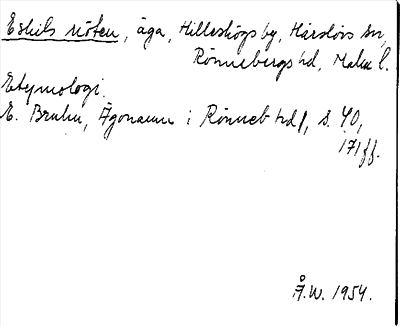 Eskils nöten, äga, Hilleshögs by, Härslövs sn,
Rönnebergs hd, Malm l.
Etymologi.
E. Bruhn, Ägonamn i Rönneb hd 1, s. 40,
171 ff.
Å.W. 1954.